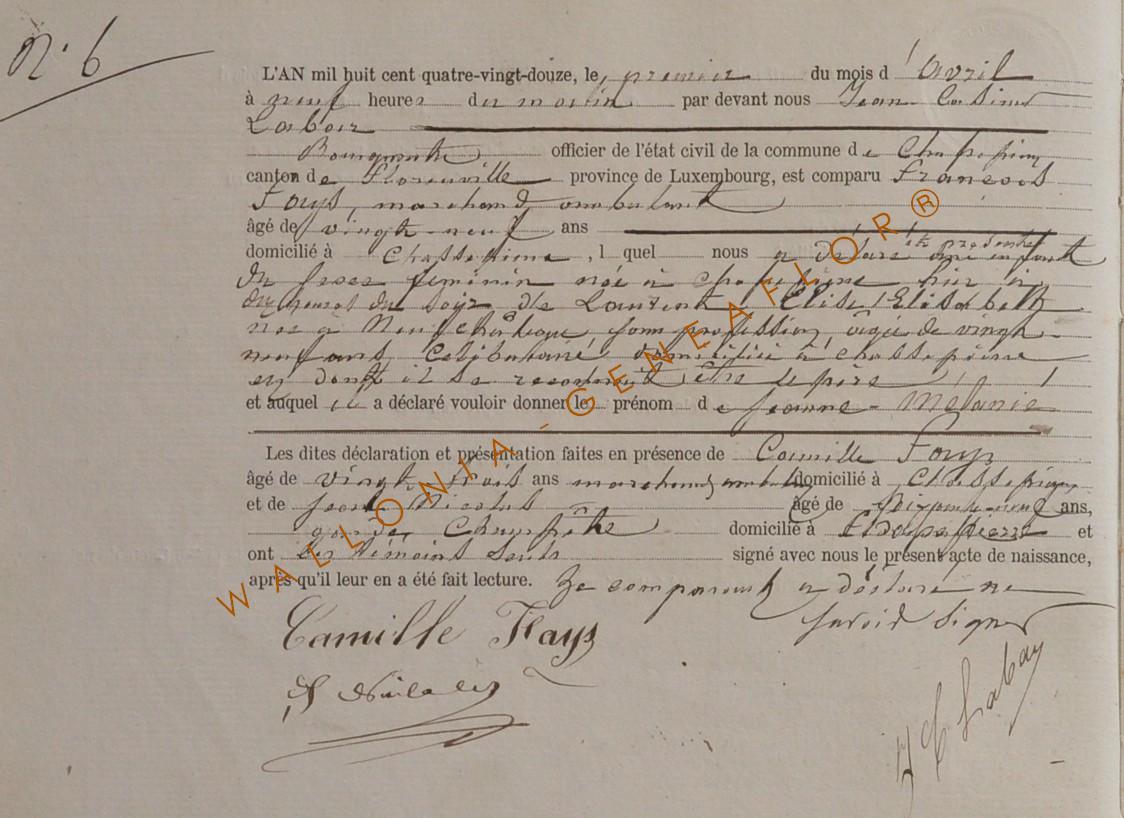 N° 6
L'AN mil huit cent quatre-vingt-douze, le premier du mois d'Avril
à neuf heures du matin par devant nous Jean Casimir
Labaiz
Bourgmestre officier de l'état civil de la commune de Chassepierre
canton de Florenville province de Luxembourg, est comparu Francois
Fays, marchand ambulant
âgé de vingt-neuf ans
domicilié à Chassepierre, lequel nous a déclaré être présenté une enfant
du sexe féminin née à chassepierre hier à
heures du soir, de Laurent Elise Elisabeth
née à Neufchâteau, sans profession, âgée de vingt-
neuf ans, Célibataire, domiciliée à chassepierre
et dont il se reconnait être le père
et auquel il a déclaré vouloir donner le prénom de Jeanne-Mélanie
Les dites déclaration et présentation faites en présence de Camille Fays
âgé de vingt trois ans marchand ambulant domicilié à Chassepierre
et de Nicolas âgé de ans,
garde Champêtre domicilié à Chassepierre et
ont les témoins seuls signé avec nous le présent acte de naissance,
après qu'il leur en a été fait lecture. Le comparant a déclaré ne
savoir signer
Camille Fays
J C Labay
WALLONIA-GENEAFLOR®